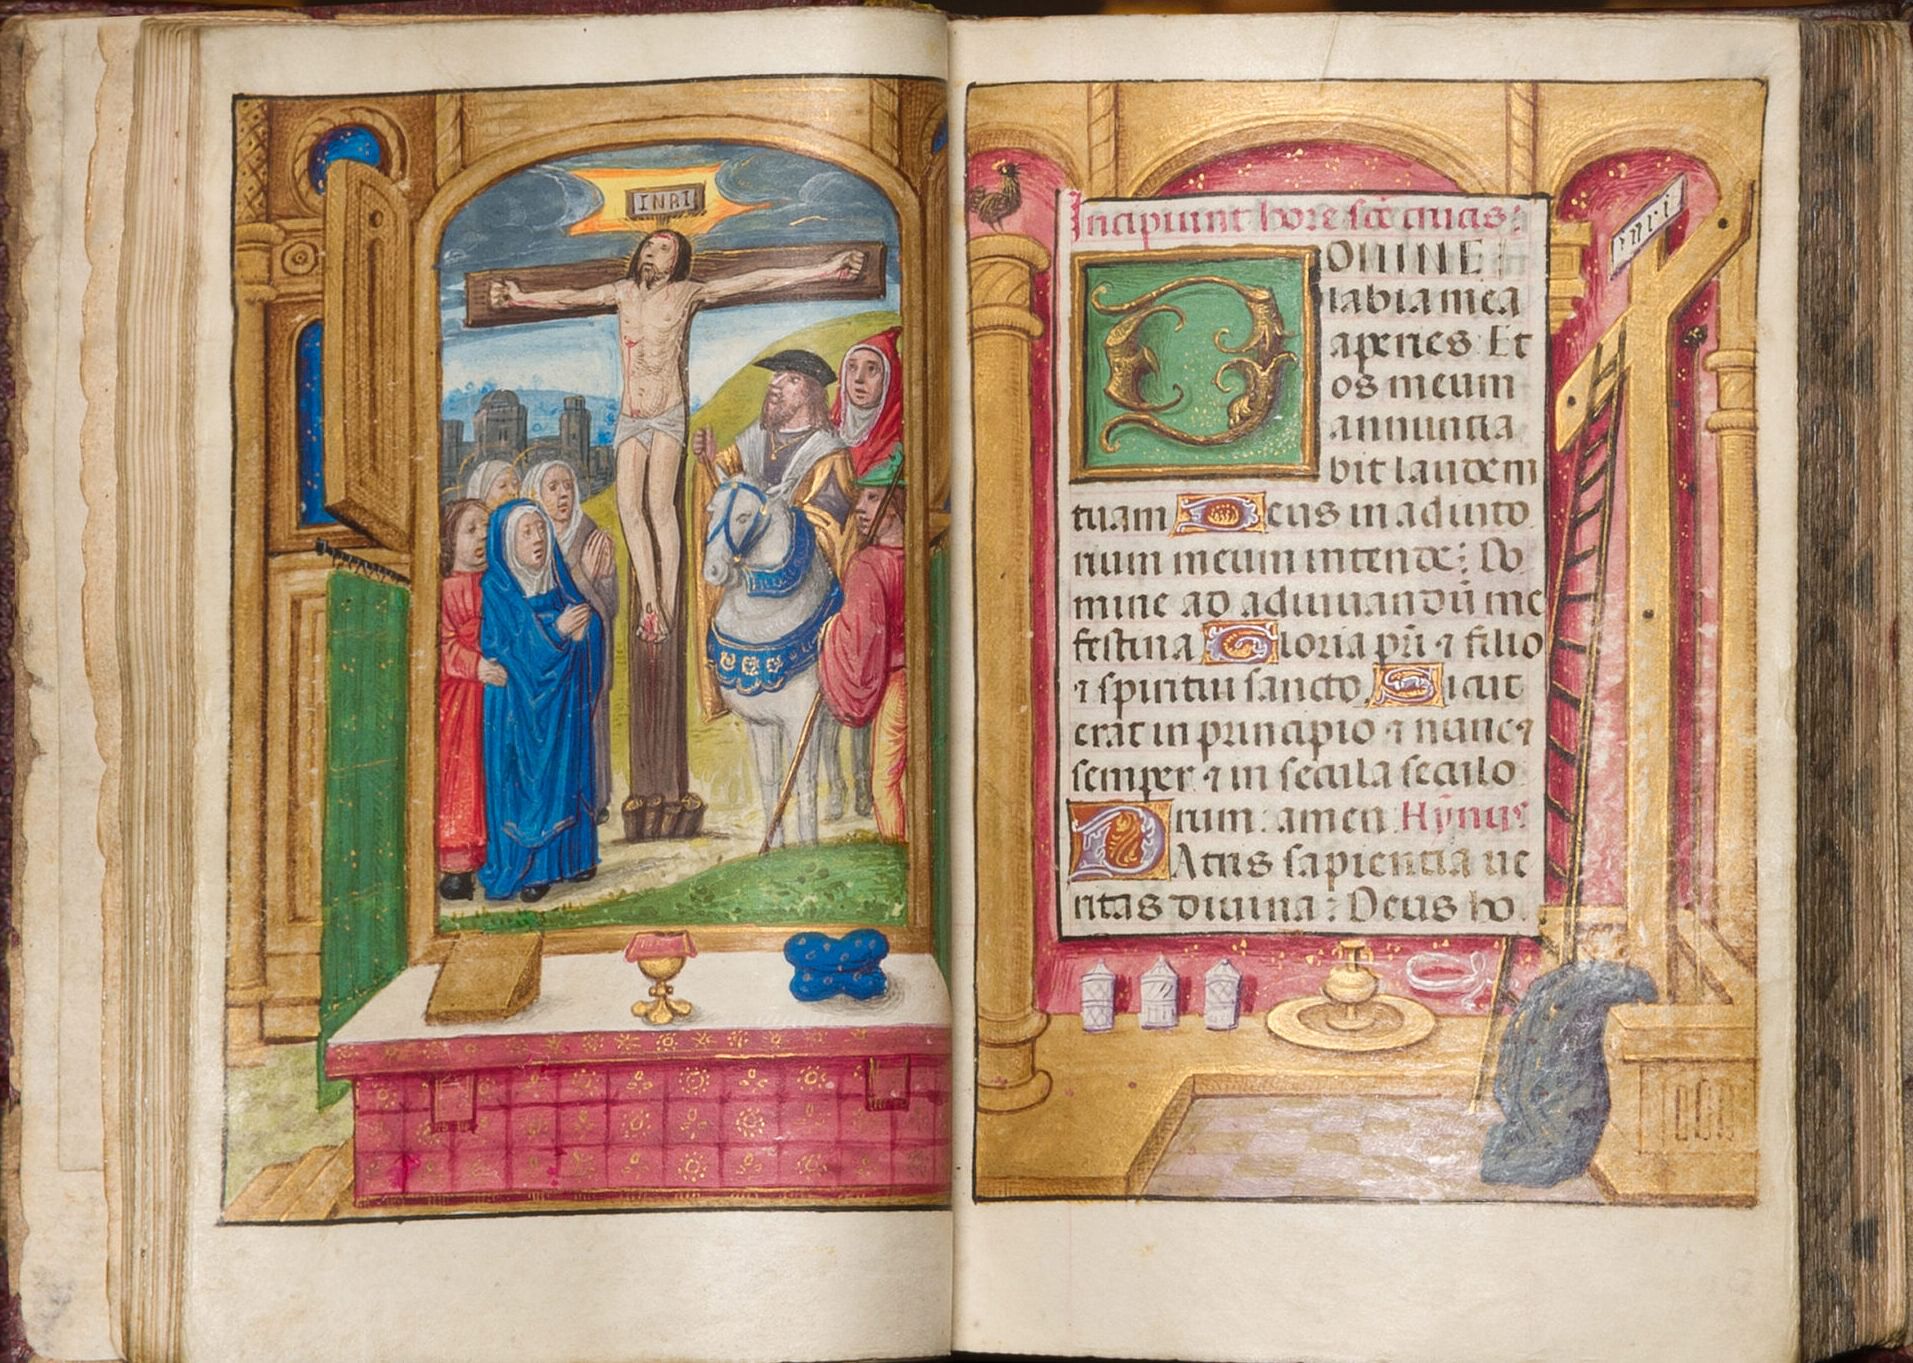 INRI
Incipiunt hore scē crucis:
DOMINE
labia mea
aperies Et
os meum
annuncia
bit laudem
tuam Deus in adiuto
rium meum intende: Do
mine ad adiuuandū me
festina Gloria pr̄i ⁊ filio
⁊ spiritui sancto Sicut
erat in principio ⁊ nunc ⁊
semper ⁊ in secula seculo
rum: amen Hȳnus
PAtris sapientia ue
ritas diuina: Deus ho
inri